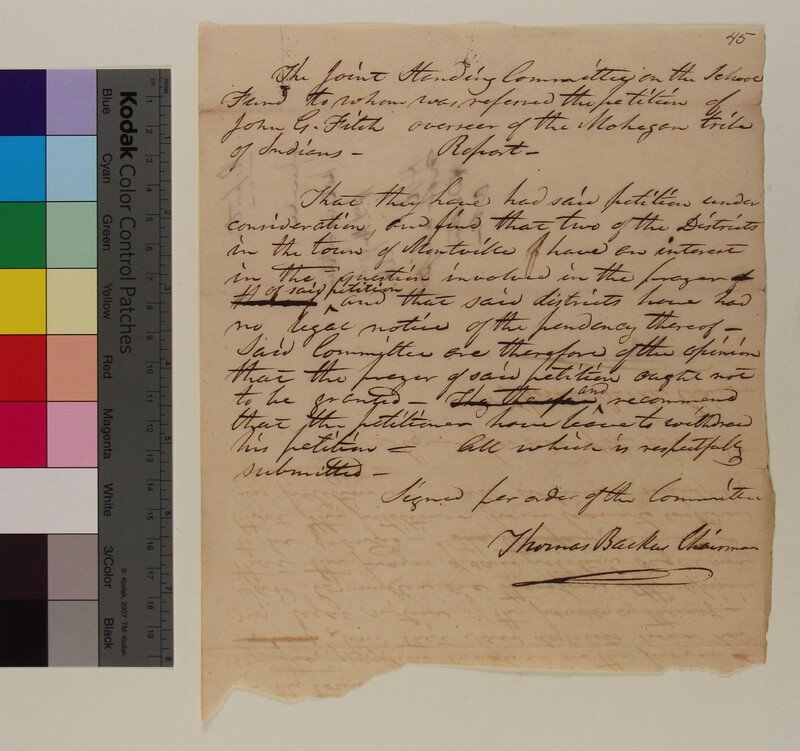 45
The Joint Standing Committee on the School
Fund to whom was referred the petition of
John G. Fitch overseer of the Mohegan tribe
of Indians — Report —
That they have had said petition under
consideration, and find that two of the Districts
in the town of Montville have an interest
in the question involved in the prayer
of said petition
and that said districts have had
no legal notice of the pendency thereof —
Said Committee are therefore of the opinion
that the prayer of said petition ought not
to be granted — and recommend
that the petitioner have leave to withdraw
his petition = All which is respectfully
submitted —
Signed per order of the Committee
Thomas Backus Chairman
Kodak Color Control Patches
Blue
Cyan
Green
Yellow
Red
Magenta
White
3/Color
Black
© Kodak, 2007 TM: Kodak
cm 1 2 3 4 5 6 7 8 9 10 11 12 13 14 15 16 17 18 19
inches 1 2 3 4 5 6 7 8